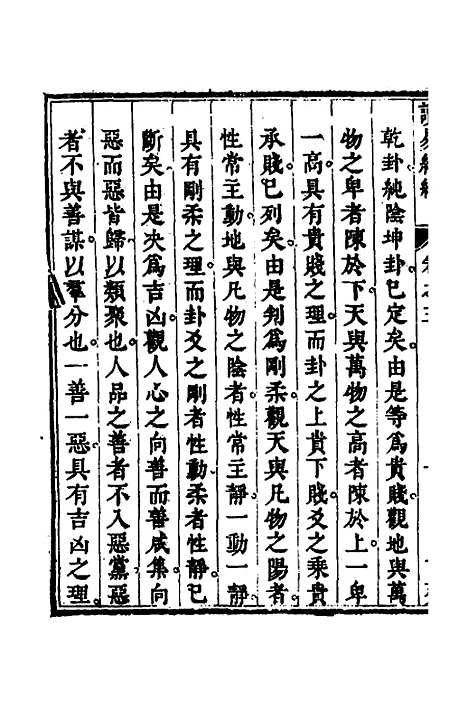 乾卦純陰坤卦已定矣由是等爲貴賤觀地與萬
物之卑者陳於下天與萬物之高者陳於上一卑
一高具有貴賤之理而卦之上貴下賤爻之乘貴
承賤已列矣由是判爲剛柔觀天與凡物之陽者
性常主動地與凡物之陰者性常主靜一動一靜
具有剛柔之理而卦爻之剛者性動柔者性靜已
斷矣由是夬爲吉凶觀人心之向善而善咸集向
惡而惡皆歸以類聚也人品之善者不入惡黨惡
者不與善謀以羣分也一善一惡具有吉凶之理